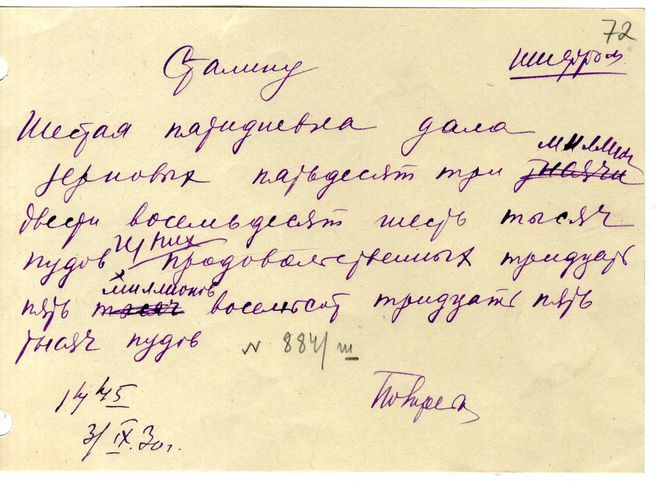 72
Сталину
шифром
Шестая пятидневка дала
миллион
зерновых пятьдесят три тысячи
двести восемьдесят шесть тысяч
из них
пудов продовольственных тридцать
миллионов
пять тысяч восемьсот тридцать пять
тысяч пудов
N 884/ш
14 45
3/IX.30г.